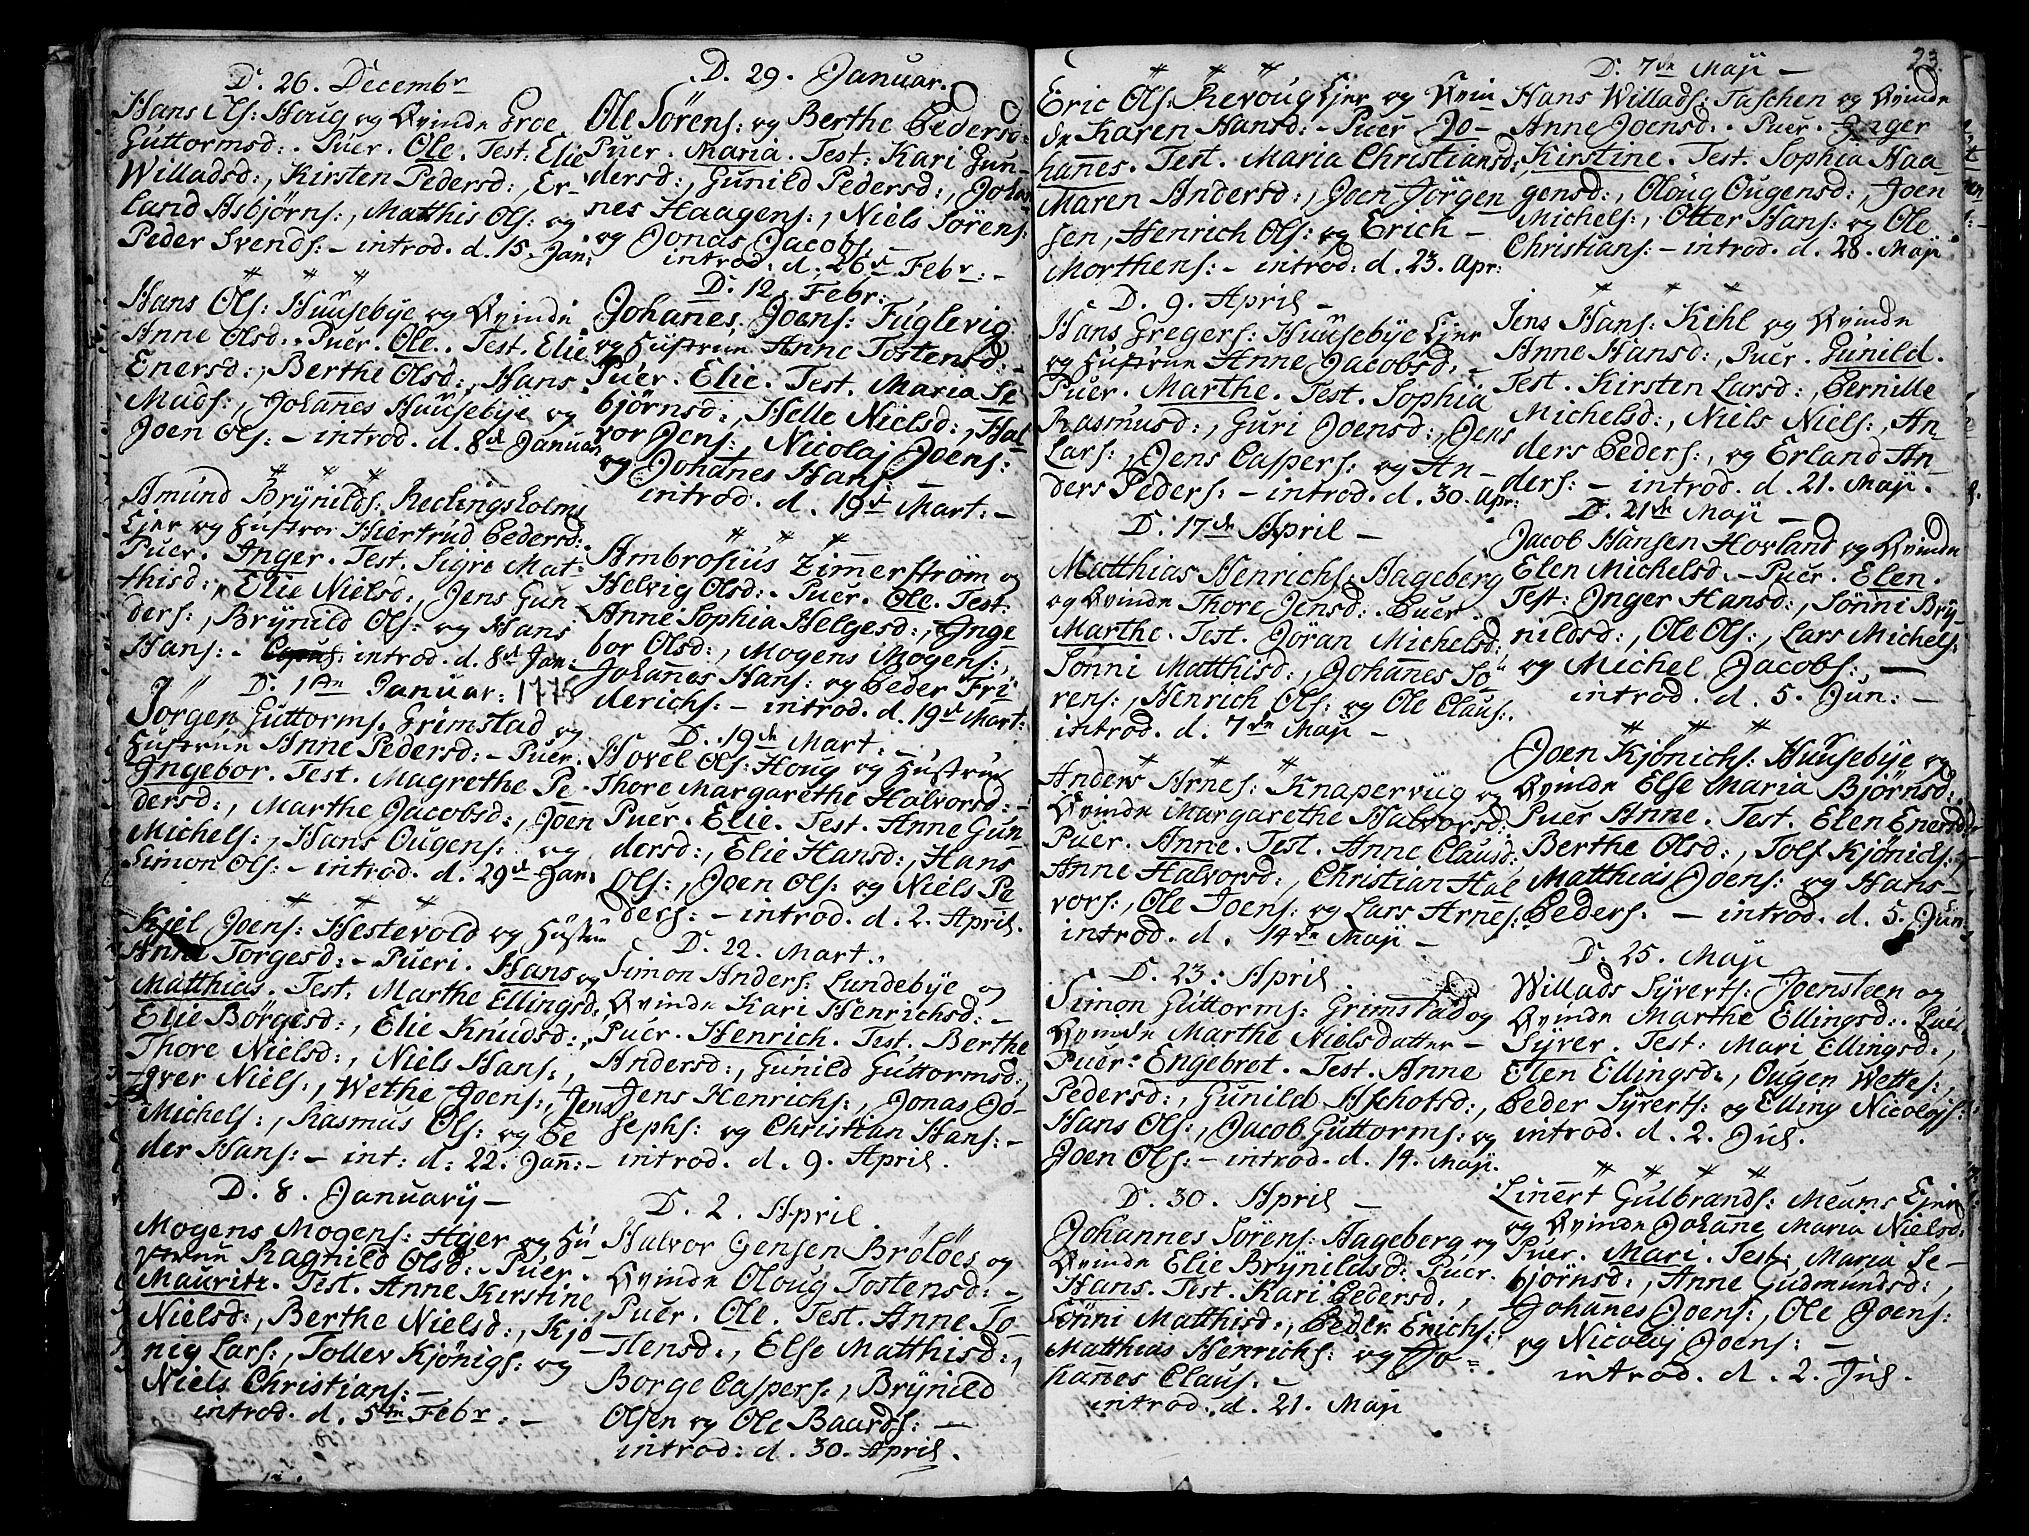 D. 26. Decembr
Hans Ols: Houg og Qvinde Groe
Guttormsd:. Puer. Ole. Test: Elie
Willadsd:, Kirsten Pedersd:, Er-
land Asbjørns:, Matthis Ols: og
Peder Svends: – introd. d. 15. Jan:
* * *
Hans Ols: Huusebye og Qvinde
Anne Olsd:. Puer. Ole. Test. Elie
Enersd:, Berthe Olsd:, Hans
Mads:, Johannes Huusebye og
Joen Ols: – introd. d. 8de Januar
* * *
Amund Brynilds: Reelingsholms
Ejer og Hustroe Hiertrud Pedersd:
Puer. Inger. Test. Sigri Mat-
thisd:, Elie Nielsd:, Jens Gun
ders:, Brynild Ols: og Hans
Hans: – introd. d. 8d Jan:
D. 1ten Januar: 1775
Jørgen Guttorms. Grimstad og
Hustrue Anne Pedersd: – Puer.
Ingebor. Test. Magrethe Pe
dersd:, Marthe Jacobsd:, Joen
Michels:, Hans Ougens: og
Simon Ols: – introd. d. 29de Jan:
* * *
Kjel Joens: Hestevold og Hustrue
Anne Torgesd: – Pueri. Hans og
Matthias. Test: Marthe Ellingsd:
Elie Børgesd:, Elie Knudsd:,
Thore Nielsd:, Niels Hans:,
Iver Niels:, Wethe Joens:, Jens
Michels:, Rasmus Ols: og Pe
der Hans: – int: d: 22. Jan: –
D. 8. January –
Mogens Mogens: Ager og Hu
strue Ragnild Olsd:. Puer.
Mauritz. Test. Anne Kirstine
Nielsd:, Berthe Nielsd:, Kjø
nig Lars:, Tollev Kjønigs: og
Niels Christians: –
introd. d. 5te Febr: –
D. 29. Januar.
Ole Sørens: og Berthe Pedersd:
Puer. Maria. Test: Kari Gun-
dersd:, Gunild Pedersd:, Johan
nes Haagens:, Niels Sørens:
og Jonas Jacobs. –
introd: d. 26d Febr: –
D. 12. Febr:
Johanes Joens: Fuglevig
og Hustrue Anne Tostensd: –
Puer. Elie. Test. Maria Se
bjørnsd:, Helle Nielsd:, Hal
vor Jens:, Nicolaj Joens:
og Johanes Hans: –
introd: d. 19d Mart: –
* * *
Ambrosius Zimerstrøm og
Helvig Olsd:. Puer. Ole. Test.
Anne Sophia Helgesd:, Inge
bor Olsd:, Mogens Mogens:,
Johannes Hans: og Peder Fri
derichs: – introd. d. 19d Mart:
D. 19de Mart: –
Hovel Ols: Houg og Hustrue
Thore Margarethe Halvorsd: –
Puer. Elie. Test. Anne Gun
dersd:, Elie Hansd:, Hans
Ols:, Joen Ols: og Niels Pe
ders: – introd. d. 2. April.
D. 22. Mart.
Simon Anders: Lundebye og
Qvinde Kari Henrichsd: –
Puer. Henrich. Test. Berthe
Andersd:, Gunild Guttormsd:,
Jens Henrichs:, Jonas Jo-
sephs: og Christian Hans: –
introd. d. 9. April.
D. 2. April.
Halvor Gensen Brøløes og
Qvinde Oloug Tostensd: –
Puer. Ole. Test. Anne To-
stensd:, Else Matthisd:,
Borge Caspers:, Brynild
Olsen og Ole Baards: –
introd: d. 30. April.
* * *
Eric Ols: Revoug Ejer og Qvin
de Karen Hansd: – Puer Jo-
hannes. Test. Maria Christiansd:,
Maren Andersd:, Joen Jørgen
sen, Henrich Ols: og Erich –
Morthens: – introd: d. 23. Apr:
D. 9. April –
Hans Gregers: Huusebye Ejer
og Hustrue Anne Jacobsd: –
Puer. Marthe. Test. Sophia
Rasmusd:, Guri Joensd:, Jens
Lars:, Jens Caspers: og An-
ders Peders: – introd. d. 30. Apr:
D. 17de April –
Matthias Henrichs: Hageberg
og Qvinde Thore Jensd:. Puer.
Marthe. Test. Jøran Michelsd:
Sønni Matthisd:, Johannes Sø
rens:, Henrich Ols: og Ole Claus:.
introd. d. 7de Maji –
* * *
Anders Arnes: Knapervug og
Qvinde Margarethe Halvorsd:
Puer. Anne. Test. Anne Clausd:,
Anne Halvorsd:, Christian Hal
vors:, Ole Joens: og Lars Arnes:
introd. d. 14de Maji –
D. 23. April.
Simon Guttorms: Grimstad og
Qvinde Marthe Nielsdatter –
Puer. Engebret. Test. Anne
Pedersd:, Gunild Aschotsd:,
Hans Ols:, Jacob Guttorms: og
Joen Ols: – introd. d. 14. Maji.
D. 30. April –
Johannes Sørens: Hageberg og
Qvinde Elie Brynildsd: Puer.
Hans. Test. Kari Pedersd:,
Sønni Matthisd:, Peder Erichs:
Matthias Henrichs: og Jo-
hannes Claus: –
introd. d. 21. Maji
23.
D. 7de Maji –
Hans Willads: Taschen og Qvinde
Anne Joensd:. Puer. Inger
Kirstine. Test. Sophia Haa-
gensd:, Oloug Ougensd:, Joen
Michels:, Otter Hans: og Ole
Christians: – introd: d. 28. Maji
* * *
Jens Hans: Kihl og Qvinde
Anne Hansd:, Puer. Gunild.
Test. Kirsten Larsd:, Pernille
Michelsd:, Niels Niels:, An-
ders Peders:, og Erland An-
ders: – introd. d. 21. Maji.
D. 21de Maji –
Jacob Hansen Hovland og Qvinde
Elen Michelsd. – Puer. Elen.
Test: Inger Hansd:, Sønni Bry-
nildsd:, Ole Ols:, Lars Michels:
og Michel Jacobs: –
introd. d. 5. Jun: –
* * *
Joen Kjønichs: Huusebye og
Qvinde Else Maria Bjørnsd:
Puer Anne. Test. Elen Enersd:
Berthe Olsd:, Tolf Kjønichs:,
Matthias Joens: og Hans –
Peders. – introd. d. 5. Jun:
D. 25. Maji
Willads Syverts: Joensteen og
Qvinde Marthe Ellingsd:. Puer
Syver. Test: Mari Ellingsd:,
Elen Ellingsd:, Ougen Wettes:,
Peder Syverts: og Elling Nicolajs:
introd. d. 2. Jul.
* * * *
Linert Gulbrands: Meums Ejer
og Qvinde Johane Maria Nielsd:
Puer. Mari. Test. Maria Se-
bjørnsd:, Anne Gudmundsd:,
Johannes Joens:, Ole Joens:
og Nicolaj Joens: –
introd. d. 2. Jul.